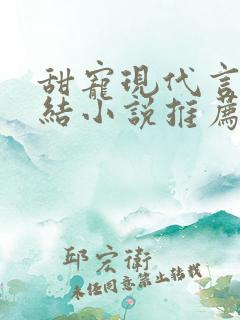 甜寵現代言
結小说推薦
邱宏衛
未经同意禁止转载